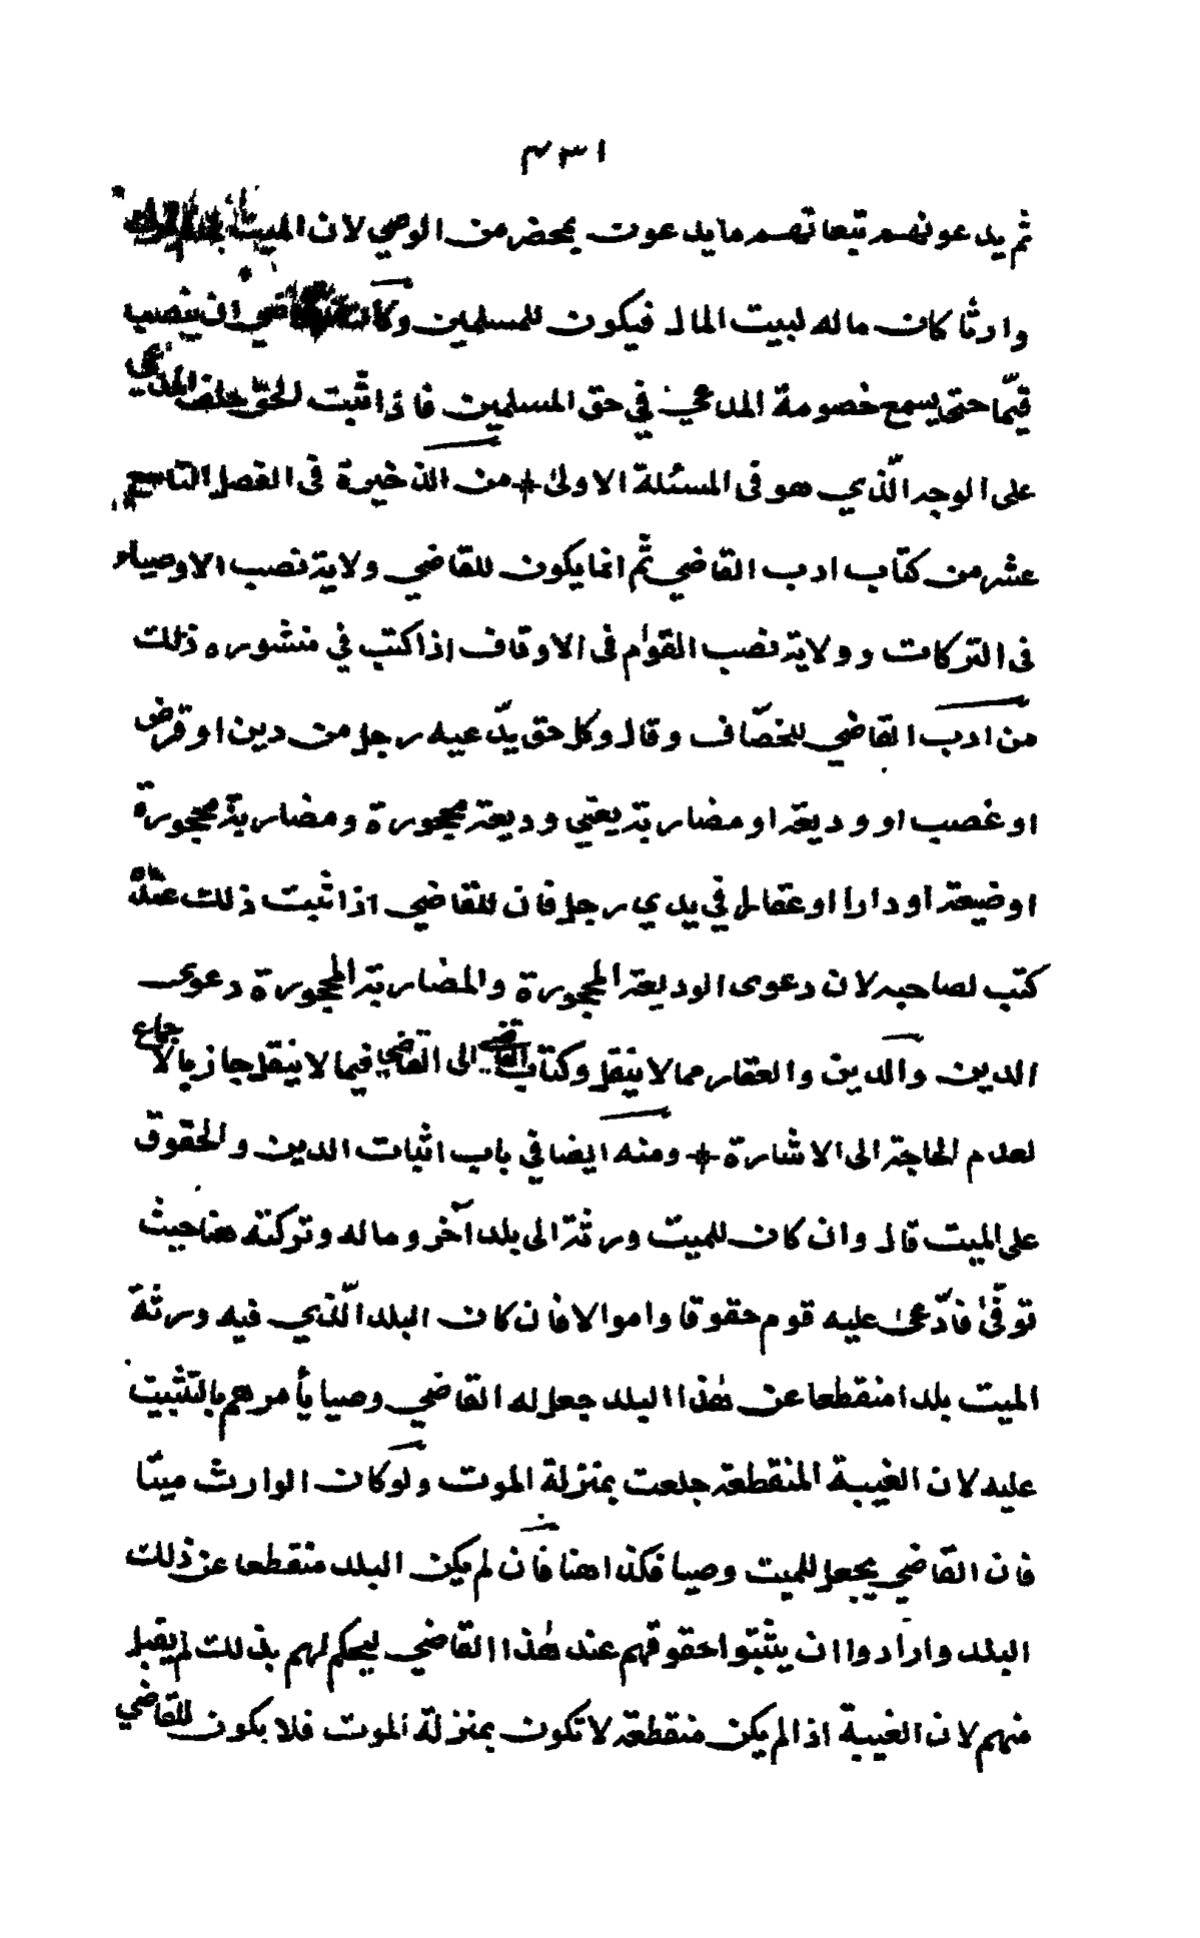 ٤٣١
ثم يدعونهم تبعاتهم ما يدعون بمحضر من الوصي لان الميت
وارثا كان ماله لبيت المال فيكون للمسلمين وكان ان ينصب
قيّما حتى يسمع خصومة المدعي في حق المسلمين فاذا اثبت الحقّ حلف المدّعي
على الوجه الّذي هو فى المسئلة الاولىٰ # من الذخيرة فى الفصل التاسع
عشر من كتاب ادب القاضي ثمّ انما يكون للقاضي ولاية نصب الاوصياء
فى التركات وولاية نصب القوام فى الاوقاف اذا كتب في منشوره ذلك
من ادب القاضي للخصّاف وقال وكل حق يدّعيه رجل من دين او قرض
او غصب او وديعة او مضاربة يعني وديعة مجحورة ومضاربة مجحورة
او ضيعة او دارا او عقار في يدي رجل فان للقاضي اذا ثبت ذلك عنده
كتب لصاحبه لان دعوى الوديعة المجحورة والمضاربة المجحورة دعوى
الدين والدين والعقار مما لا ينقل وكتاب القاضي الى القاضي فيما لا ينقل جاز بالاجماع
لعدم الحاجة الى الاشارة # ومنه ايضا في باب اثبات الدين والحقوق
على الميت قال وان كان للميت ورثة الى بلد آخر وماله وتركته هنا حيث
توفّىٰ فادّعىٰ عليه قوم حقوقا واموالا فان كان البلد الّذي فيه ورثة
الميت بلدا منقطعا عن هٰذا البلد جعل له القاضي وصيا يأمرهم بالتّثبيت
عليه لان الغيبة المنقطعة جلعت بمنزلة الموت ولو كان الوارث ميتا
فان القاضي يجعل للميت وصيا فكذا هنا فان لم يكن البلد منقطعا عن ذلك
البلد وارادوا ان يثبتوا حقوقهم عند هٰذا القاضي ليحكم لهم بذلك لم يقبل
منهم لان الغيبة اذا لم يكن منقطعة لا تكون بمنزلة الموت فلا يكون للقاضي